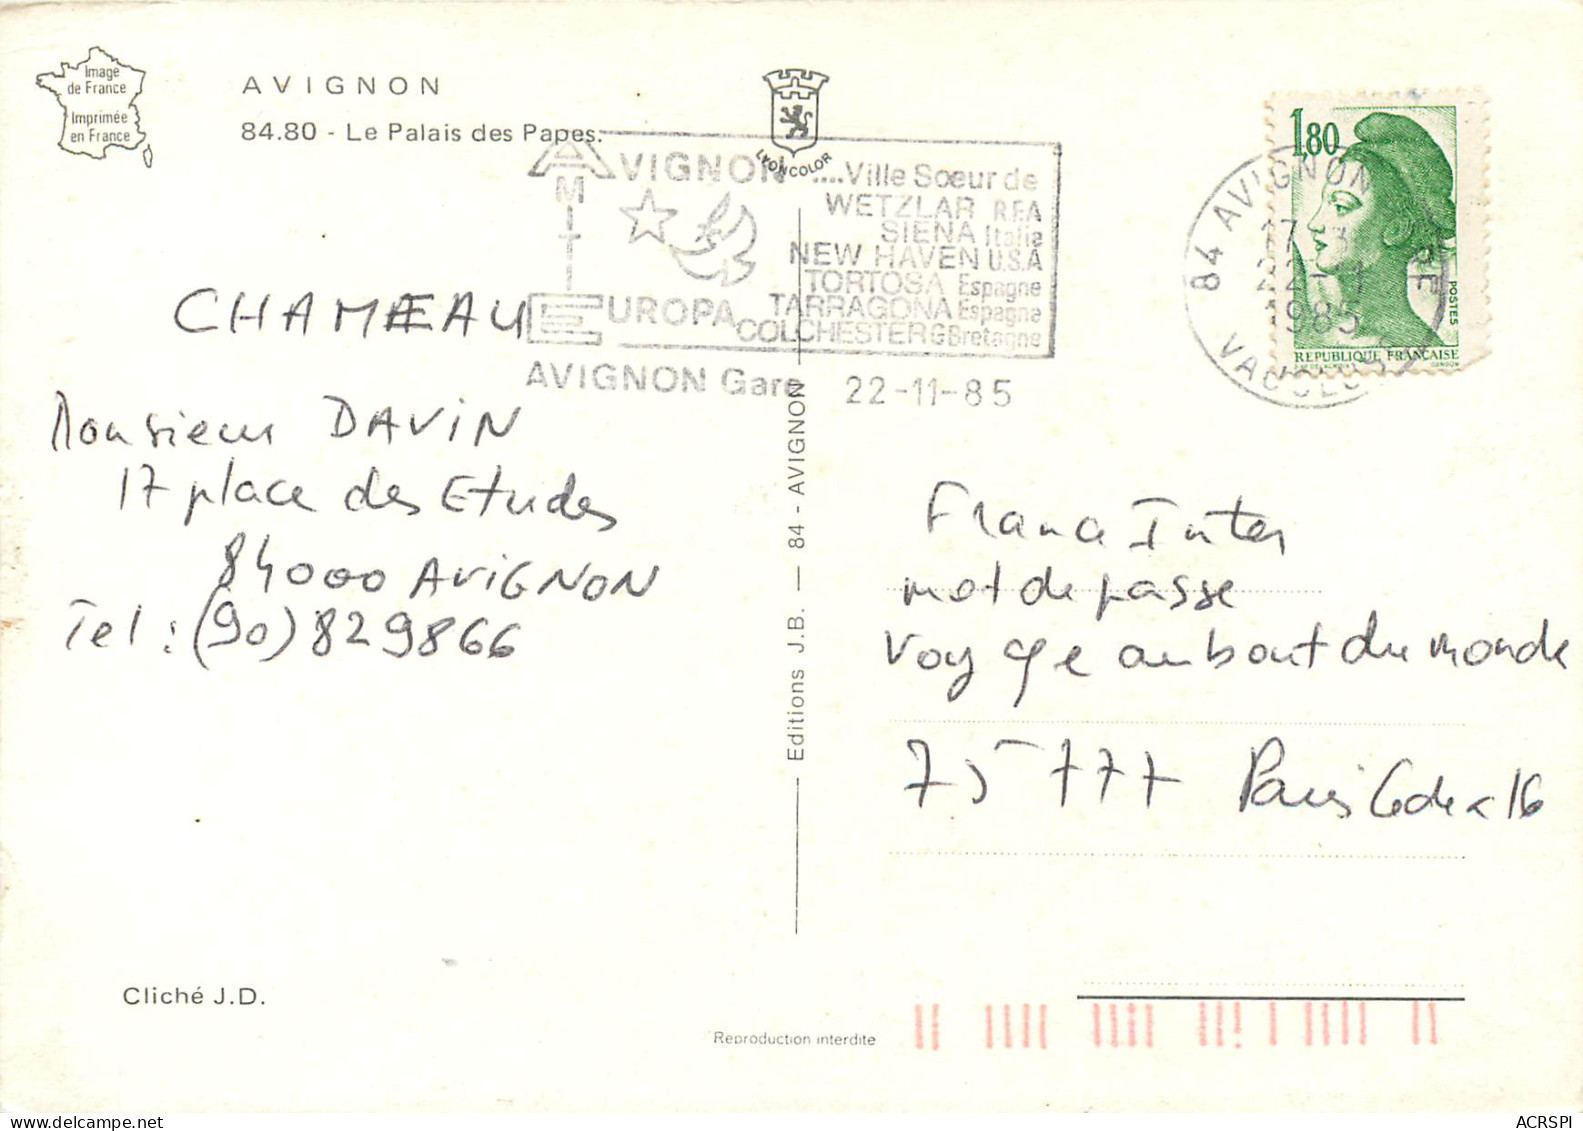 Image
de France
Imprimée
en France
AVIGNON
84.80 - Le Palais des Papes.
LYONCOLOR
AVIGNON ....Ville Sœur de
AMITIE
WETZLAR R.F.A
SIENA Italie
NEW HAVEN U.S.A
TORTOSA Espagne
TARRAGONA Espagne
EUROPA COLCHESTER G Bretagne
AVIGNON Gare 22-11-85
1,80
POSTES
REPUBLIQUE FRANÇAISE
84 AVIGNON R.P.
22-11
1985
VAUCLUSE
CHAMEAU
Monsieur DAVIN
17 place des Etudes
84000 AVIGNON
Tel : (90) 829866
Editions J.B. — 84 - AVIGNON
France Inter
mot de passe
Voyage au bout du monde
75777 Paris Cedex 16
Cliché J.D.
Reproduction interdite
ACRSPI